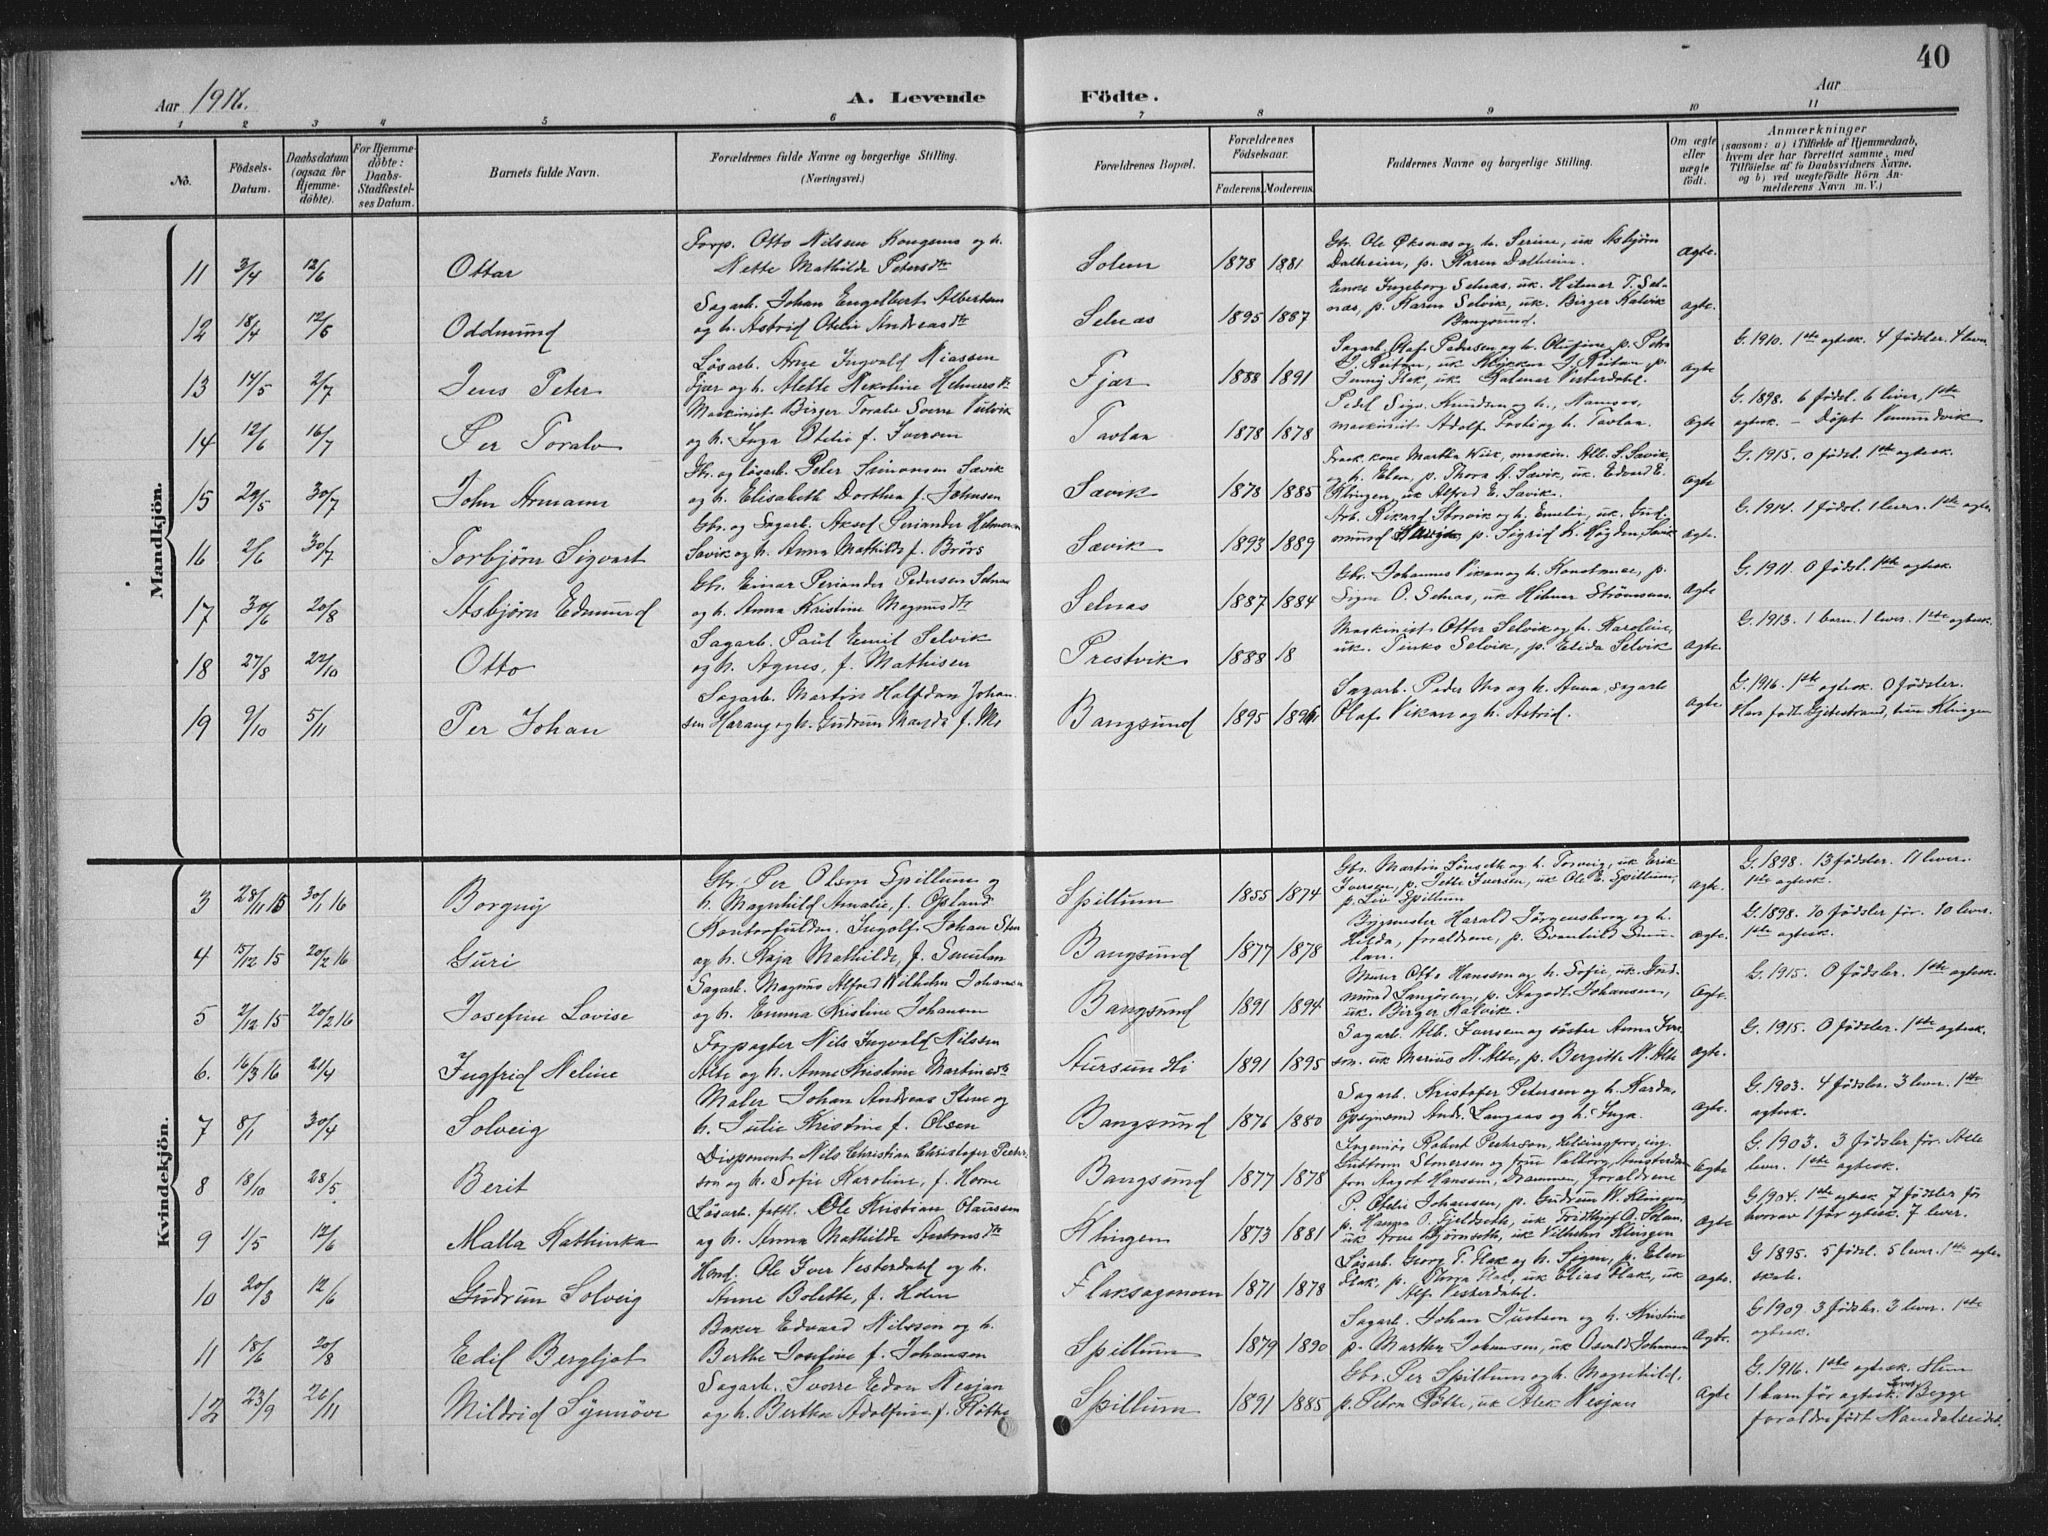 40
Aar 1916. A. Levende Födte. Aar
1 2 3 4 5 6 7 8 9 10 11
No.
Födsels-Datum.
Daabsdatum (ogsaa for Hjemmedöbte).
For Hjemmedöbte: Daabs-Stadfæstelses Datum.
Barnets fulde Navn.
Forældrenes fulde Navne og borgerlige Stilling.
(Næringsvei.)
Forældrenes Bopæl.
Forældrenes Födselsaar.
Faderens. Moderens.
Faddernes Navne og borgerlige Stilling.
Om ægte eller uægte födt.
Anmærkninger
(saasom: a) i Tilfælde af Hjemmedaab, hvem der har forrettet samme, med Tilföielse af to Daabsvidners Navne, og b) ved uægtefödte Börn Anmelderens Navn m. V.)
Mandkjön.
11 3/4 12/6 Ottar
Forp. Otto Nilsen Kongsmo og h.
Nette Mathilde Petersdtr
Solem 1878 1881
Gbr. Ole Øksnæs og h. Serine, uk Asbjørn
Dalheim, p. Karen Dalheim.
Ægte.
12 18/4 12/6 Oddmund
Sagarb. Johan Engelbert Albertsen
og h. Astrid Otelie Andreasdtr
Selnæs 1895 1887
Enke Ingeborg Selnæs, uk. Hilmar T. Sel-
næs, p. Karen Selvik, uk. Birger Kalvik
Bangsund.
ægte.
13 14/5 2/7 Jens Peter
Løsarb. Arne Ingvald Niassen
Fjær og h. Alette Nekoline Helmersdtr
Fjær 1888 1891
Sagarb. Olaf Pedersen og h. Olufine, p. Petra
J. Reitan, uk. J. Reitan, p.
Jenny Flak, uk. Kalmar Vesterdahl.
ægte
G. 1910. 1ste ægtesk. 4 fødsler. 4 lever.
14 12/6 16/7 Per Toralv
Maskinist Birger Toralv Sverre
og h. Inga Otelie f. Iversen
Tavlan 1878 1878
Pedel Sigv. Knudsen og h., Namsos,
maskinist Adolf og h. Tavlan.
ægte
G. 1898. 6 fødsl. 6 lever, 1ste
ægtesk. – Døpt Vemundvik
15 29/5 30/7 John Armann
Gbr. og løsarb. Peter Simonsen Sævik
og h. Elisabeth Dorthea f. Johnsen
Sævik 1878 1885
kone Martha Wiik, maskin. Alb. S. Sævik,
og h. Elen, p. Thora A. Sævik, uk. Edvard E.
Klingen, uk Alfred E. Sævik.
Ægte
G. 1915. 0 fødsl. 1ste ægtesk.
16 2/6 30/7 Torbjørn Sigvart
Gbr. og Sagarb. Aksel Periander Helmersen
Sævik og h. Anna Mathilde f. Brørs
Sævik 1893 1889
Arb. Rikard Storvik og h. Emelie, uk. Gud-
mund p. Sigrid K. Høgden, Sævik
ægte.
G. 1914. 1 fødsl. 1 lever. 1ste ægtes
17 30/6 20/8 Asbjørn Edmund
Gbr. Einar Periander Pedersen Selnæs
og h. Anna Kristine Magnusdtr
Selnæs 1887 1884
Gbr. Johannes Vikan og h. Konstanse, p.
Signe O. Selnæs, uk Hilmar Strømsnæs.
Ægte
G. 1911. 0 fødsl. 1ste ægtesk.
18 27/8 22/10 Otto
Sagarb. Paul Emil Selvik
og h. Agnes, f. Mathisen
Prestvik 1888 18
Maskinist Otter Selvik og h. Karoline,
uk. Selvik, p. Elida Selvik
ægte.
G. 1913. 1 barn. 1 lever. 1ste ægtesk.
19 9/10 5/11 Per Johan
Sagarb. Martin Halfdan Johan-
sen Harang og h. Gudrun Manda f. Mo
Bangsund 1895 1896
Sagarb. Peder Mo og h. Anna, sagarb
Olaf Vikan og h. Astrid.
ægte.
G. 1916. 1ste ægtesk. 0 fødsler.
Han født Gjetestrand, hun Klingen
Kvindekjön.
3 28/11 15 30/1 16 Borgny
Gbr. Per Olsen Spillum og
h. Magnhild Amalie, f. Opland
Spillum 1855 1874
Gbr. Martin Sønseth og h. Torveig, uk Erik
Iversen, p. Jette Iversen, uk Ole E. Spillum,
p. Liv Spillum
ægte.
G. 1898. 13 fødsler. 11 lever.
1ste ægtesk.
4 15/12 15 20/2 16 Guri
Kontorfuldm. Ingolf Johan Sten
og h. Kaja Mathilde, f. Smulan
Bangsund 1877 1878
Bygmester Harald Jørgensborg og h.
Hilda, forældrene, p. Svanhild Smu-
lan.
ægte.
G. 1898. 10 fødsler før. 10 lever.
1ste ægtesk.
5 2/12 15 20/2 16 Josefine Lovise
Sagarb. Magnus Alfred Vilhelm Johansen
og h. Emma Kristine Johansen
Bangsund 1891 1894
Murer Otto Hanssen og h. Sofie, uk. Gud-
mund Langøren, p. Aagodt Johansen,
uk. Birger Kalvik.
Ægte.
G. 1915. 0 fødsler. 1ste ægtesk.
6. 16/3 16 21/4 Ingfrid Neline
Forpagter Nils Ingvald Nilssen
Alte og h. Anne Kristine Martinsdtr
Aursundli 1891 1895
Sagarb. Alb. Iverssen og søster Anna Iver-
son. uk Marius N. Alte, p. Bergitte N. Alte
ægte.
G. 1915. 0 fødsler. 1ste ægtesk.
7 8/1 30/4 Solveig
Maler Johan Andreas Stene og
h. Julie Kristine f. Olsen
Bangsund 1876 1880
Sagarb. Kristofer Petersen og h. Karda,
opsynsmd Andr. Langaas og h. Inga.
Ægte.
G. 1903. 4 fødsler. 3 lever. 1ste
ægtesk.
8 18/10 28/5 Berit
Disponent Nils Christian Christofer Peter-
son og h. Sofie Karoline, f. Horne
Bangsund 1877 1878
Ingeniør Robert Peterson, Helsingfors, ing.
Guttorm Stenersen og frue Valborg, Amsterdam
frøn Aagot Hansson, Drammen, forældrene
Ægte
G. 1903. 3 fødsler før. Alle
lever. 1ste ægtesk.
9 1/5 12/6 Malla Kathinka
Løsarb. fattl. Ole Kristian Olaussen
og h. Anna Mathilde
Klingen 1873 1881
P. Otelie Johansen, p. Gudrun W. Klingen,
p. Hanna O. Fjeldseth, uk Fridthjof A. Solem,
uk Arne Bjørnseth, uk Vilhelm Klingen
ægte
G. 1904. 1ste ægtesk 7 fødsler før
hvorav 1 før ægtesk. 7 lever.
10 20/3 12/6 Gudrun Solveig
Hand. Ole Iver Vesterdahl og h.
Anne Bolette, f. Holm
Flaksagenoen 1871 1878
Løsarb. Georg T. Flak og h. Signe, p. Elen
Flak, p. Thora Flak, uk Elias Flak, uk
Alf Vesterdahl.
ægte.
G 1895. 5 fødsl. 5 lever. 1ste ægte-
skab.
11 18/6 20/8 Edil Bergljot
Baker Edvard Nilssen og h.
Berthe Josefine f. Johansen
Spillum 1879 1890
Sagarb. Johan Justsen og h. Kristine
p. Marthe Johansen, uk Osvald Johansen
Ægte.
G. 1909. 3 fødsler. 3 lever. 1ste
ægtesk.
12 23/9 26/11 Mildrid Synnøve
Sagarb. Sverre Edon Nesjan
og h. Bertha Adolfine f. Fløtte
Spillum 1891 1885
Gbr. Per Spillum og h. Magnhild.
p. Petra Fløtte, uk Alek Nesjan
ægte
G. 1916. 1ste ægtesk. Hun
1 barn før ægtesk. Begge
forældre født Namdalseidet.